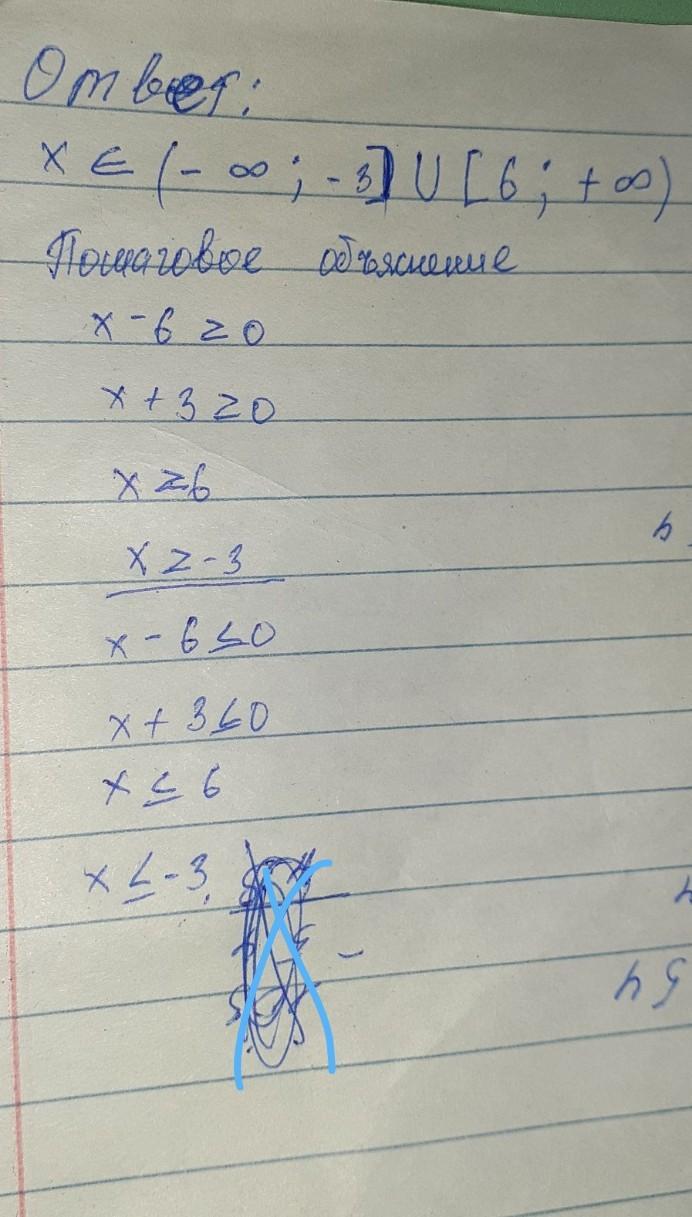 Ответ:
x ∈ (-∞; -3] ∪ [6; +∞)
Пошаговое объяснение
x - 6 ≥ 0
x + 3 ≥ 0
x ≥ 6
x ≥ -3
x - 6 ≤ 0
x + 3 ≤ 0
x ≤ 6
x ≤ -3